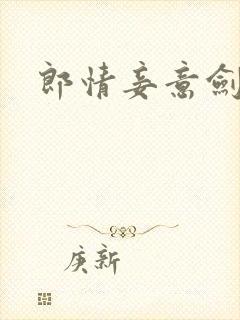 郎情妾意劍
庚新